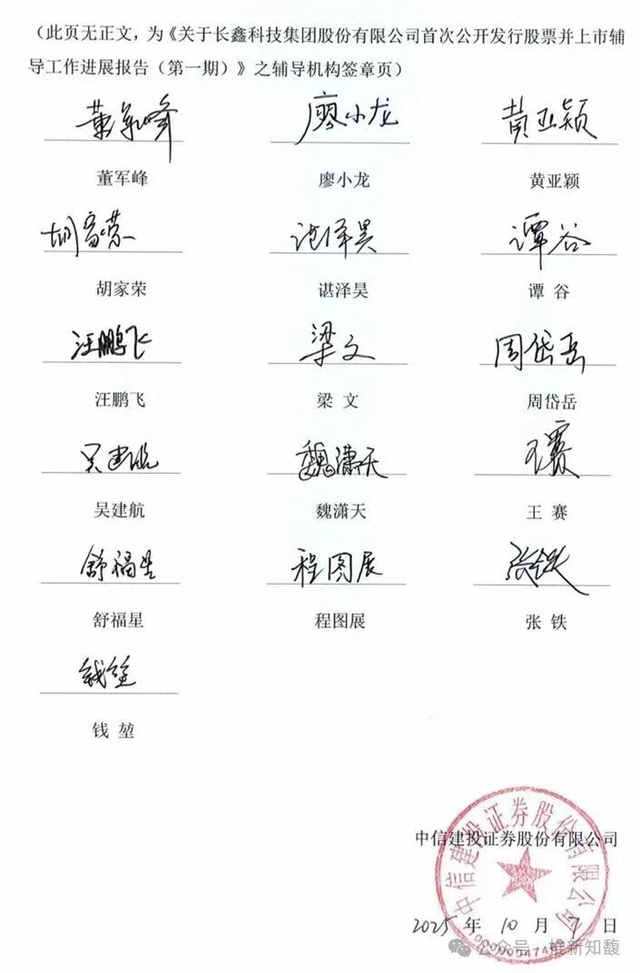 （此页无正文，为《关于长鑫科技集团股份有限公司首次公开发行股票并上市辅
导工作进展报告（第一期）》之辅导机构签章页）
董军峰 廖小龙 黄亚颖
董军峰 廖小龙 黄亚颖
胡家荣 谌泽昊 谭谷
胡家荣 谌泽昊 谭 谷
汪鹏飞 梁文 周岱岳
汪鹏飞 梁 文 周岱岳
吴建航 魏潇天 王赛
吴建航 魏潇天 王 赛
舒福星 程图展 张铁
舒福星 程图展 张 铁
钱堃
钱 堃
中信建投证券股份有限公司
中信建投证券股份有限公司
2025 年 10 月 9 日
公众号·维新知馥